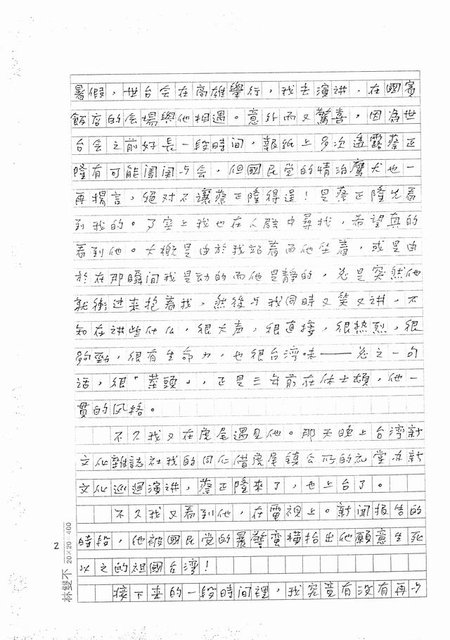 暑假,世台会在高雄舉行,我去演講,在國賓
飯店的会場與他相遇。意外而又驚喜,因為世
台会之前好長一段時間,報紙上多次透露蔡正
隆有可能闖関与会,但國民党的情治鷹犬也一
再揚言,絕对不讓蔡正隆得逞!是蔡正隆先看
到我的。事实上我也在人群中尋找,希望真的
看到他。大概是由於我站着而他坐着,或是由
於在那瞬间我是動的而他是靜的,総是突然他
就衝过來抱着我,然後与我同時又笑又講,不
知在講些什么,很大声,很直接,很熱烈,很
夠勁,很有生命力,也很台湾味——总之一句
話,很"菜頭"。正是三年前在休士頓,他一
貫的风格。
不久我又在虎尾遇見他。那天晚上台湾新
文化雜誌社我的同仁借虎尾鎮公所的礼堂在新
文化巡迴演講,蔡正隆來了,也上台了。
不久我又看到他,在電視上。新闻报告的
時段,他被國民党的暴警蛮橫抬出他願意生死
以之的祖國台湾!
接下來的一段時间裡,我究竟有沒有再与
2
20×20=400
林雙不